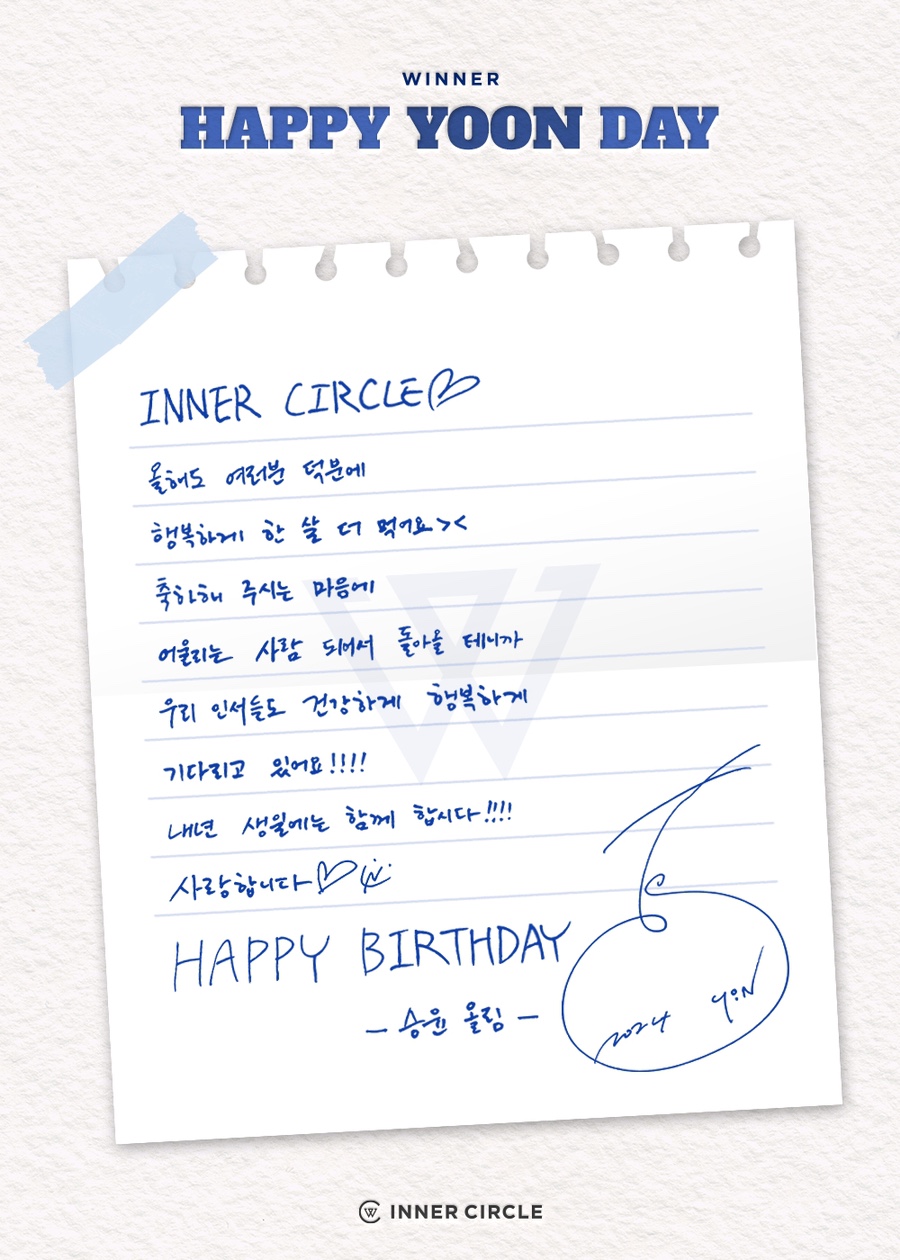 WINNER
HAPPY YOON DAY
INNER CIRCLE♡
올해도 여러분 덕분에
행복하게 한 살 더 먹어요><
축하해 주시는 마음에
어울리는 사람 되어서 돌아올 테니까
우리 인서들도 건강하게 행복하게
기다리고 있어요!!!!
내년 생일에는 함께 합시다!!!!
사랑합니다♡
HAPPY BIRTHDAY
- 승윤 올림 -
2024 YOON
INNER CIRCLE